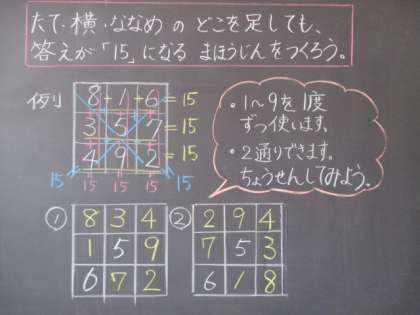 たて・横・ななめ の どこを足しても、
答えが「15」になる まほうじんをつくろう。
例)
8+1+6=15
3 5 7=15
4 9 2=15
15 15 15 15 15
・1〜9を1度
ずつ使います。
・2通りできます。
ちょうせんしてみよう。
①
8 3 4
1 5 9
6 7 2
②
2 9 4
7 5 3
6 1 8